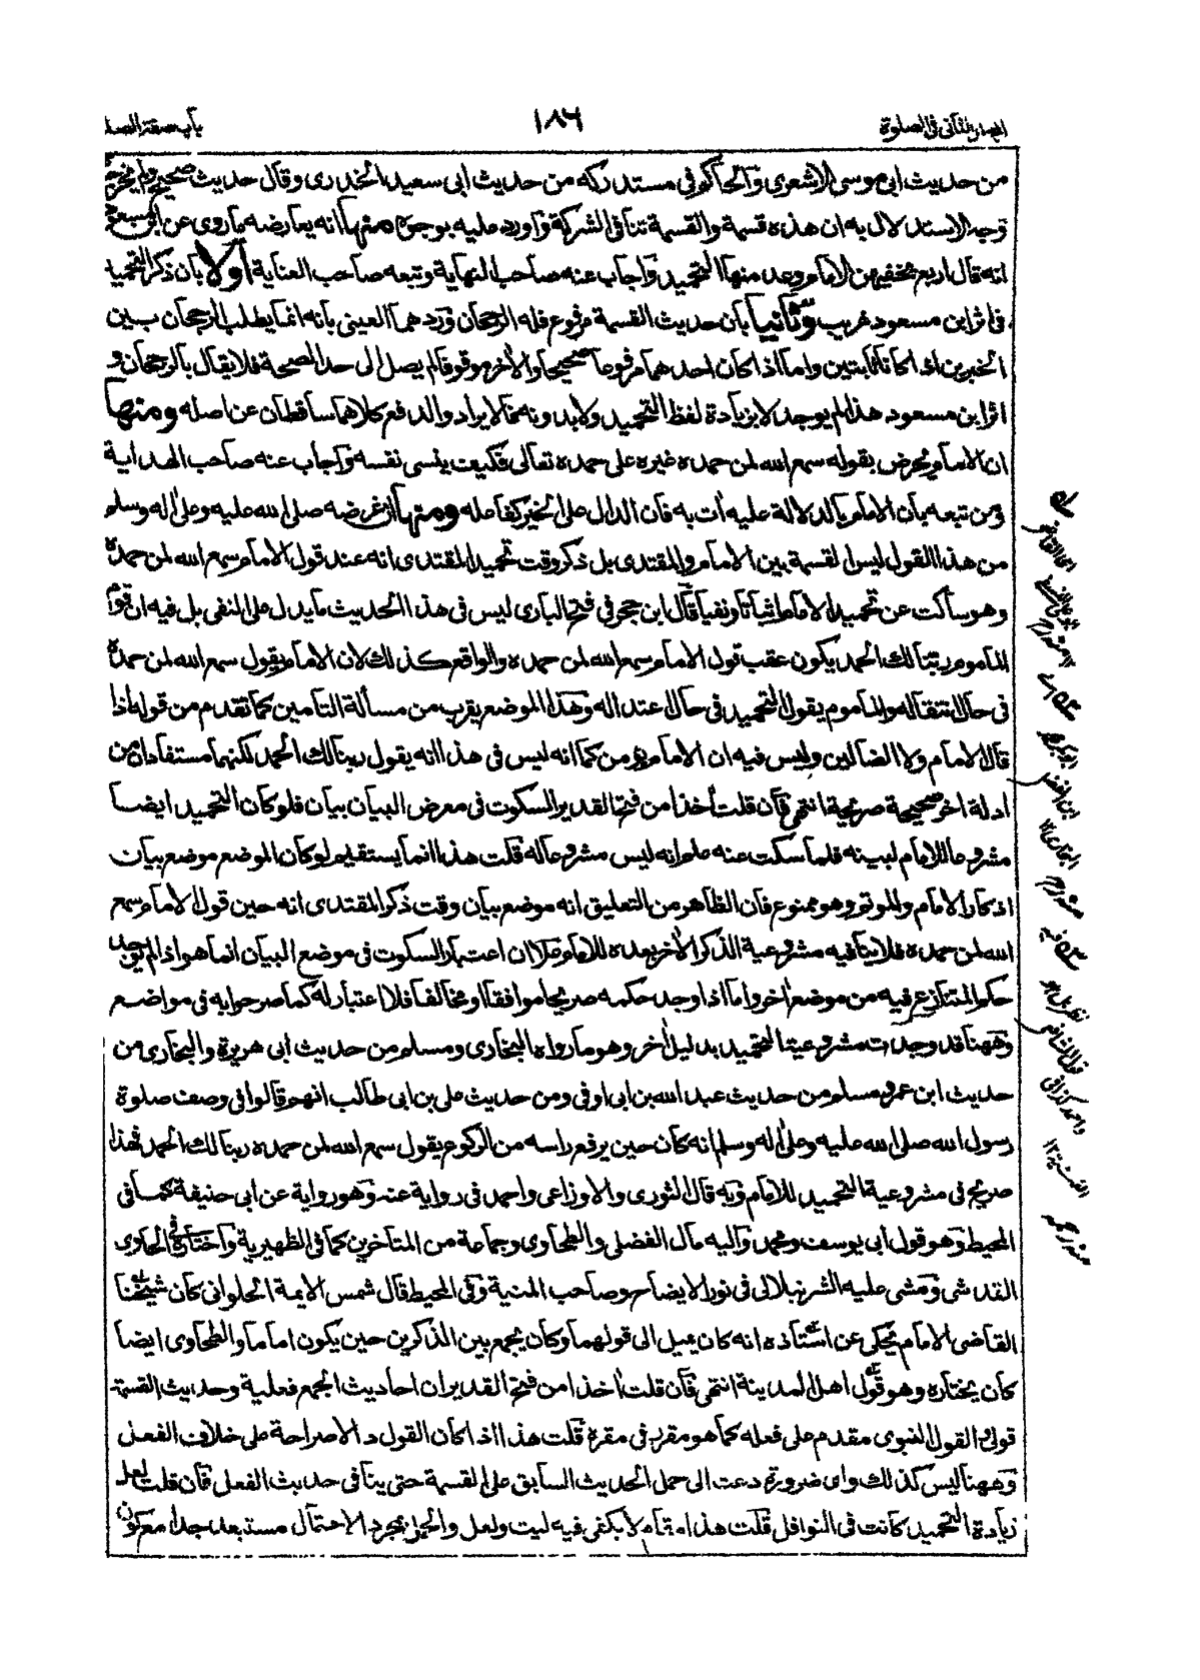 المجلد الثاني في الصلوة
١٨٦
باب صفة الصلـ
من حديث ابي موسى الاشعري والحاكم في مستدركه من حديث ابي سعيد الخدري وقال حديث صحيح ولم يخرج
وجه الاستدلال به ان هذه قسمة والقسمة تنافي الشركة واورد عليه بوجوه منها انه يعارضه ما روى عن ابن مسعود
انه قال اربع يخفيهن الامام وعد منها التحميد واجاب عنه صاحب النهاية وتبعه صاحب العناية اولا بان ذكر التحميد
في اثر ابن مسعود غريب وثانيا بان حديث القسمة مرفوع فله الرجحان وردهما العيني بانه انما يطلب الرجحان بين
الخبرين اذا كانا ثابتين واما اذا كان احدهما مرفوعا صحيحا والأخر موقوفا لم يصل الى حد الصحة فلا يقال بالرجحان و
اثر ابن مسعود هذا لم يوجد لا بزيادة لفظ التحميد ولا بدونه فالايراد والدفع كلاهما ساقطان عن اصله ومنها
ان الامام يحرض بقوله سمع الله لمن حمده غيره على حمده تعالى فكيف ينسى نفسه واجاب عنه صاحب الهداية
ومن تبعه بان الامام بالدلالة عليه أت به فان الدال على الخير كفاعله ومنها ان غرضه صلى الله عليه وعلى أله وسلم
من هذا القول ليس القسمة بين الامام والمقتدى بل ذكر وقت تحميد المقتدى انه عند قول الامام سمع الله لمن حمده
وهو ساكت عن تحميد الامام اثباتا ونفيا قال ابن حجر في فتح الباري ليس في هذا الحديث ما يدل على النفي بل فيه ان قول
الماموم ربنا لك الحمد يكون عقب قول الامام سمع الله لمن حمده والواقع كذلك لان الامام يقول سمع الله لمن حمده
في حال انتقاله والماموم يقول التحميد في حال اعتداله وهذا الموضع يقرب من مسألة التامين كما تقدم من قوله اذا
قال الامام ولا الضالين وليس فيه ان الامام يؤمن كما انه ليس في هذا انه يقول ربنا لك الحمد لكنهما مستفادان من
ادلة اخر صحيحة صريحة انتهى فان قلت أخذا من فتح القدير السكوت في معرض البيان بيان فلو كان التحميد ايضا
مشروعا للامام لبينه فلما سكت عنه علم انه ليس مشروعا له قلت هذا انما يستقيم لو كان الموضع موضع بيان
اذكار الامام والموتم وهو ممنوع فان الظاهر من التعليق انه موضع بيان وقت ذكر المقتدى انه حين قول الامام سمع
الله لمن حمده فلا ينافيه مشروعية الذكر الأخر بعده للامام علا ان اعتبار السكوت في موضع البيان انما هو اذا لم يوجد
حكم المتنازع فيه من موضع أخر واما اذا وجد حكمه صريحا موافقا او مخالفا فلا اعتبار له كما صرحوا به في مواضع
وههنا قد وجدت مشروعية التحميد بدليل أخر وهو ما رواه البخاري ومسلم من حديث ابي هريرة والبخاري من
حديث ابن عمر ومسلم من حديث عبد الله بن ابي اوفى ومن حديث علي بن ابي طالب انهم قالوا في وصف صلوة
رسول الله صلى الله عليه وعلى أله وسلم انه كان حين يرفع راسه من الركوع يقول سمع الله لمن حمده ربنا لك الحمد فهذا
صريح في مشروعية التحميد للامام وبه قال الثوري والاوزاعي واحمد في رواية عنه وهو رواية عن ابي حنيفة كما في
المحيط وهو قول ابي يوسف ومحمد واليه مال الفضلي والطحاوي وجماعة من المتأخرين كما في الظهيرية واختاره في الحاوي
القدسي ومشى عليه الشرنبلالي في نور الايضاح وصاحب المنية وفي المحيط قال شمس الايمة الحلواني كان شيخنا
القاضي الامام يحكى عن استاذه انه كان يميل الى قولهما وكان يجمع بين الذكرين حين يكون اماما والطحاوي ايضا
كان يختاره وهو قول اهل المدينة انتهى فان قلت أخذا من فتح القدير ان احاديث الجمع فعلية وحديث القسمة
قولي والقول النبوي مقدم على فعله كما هو مقرر في مقره قلت هذا اذا كان القول دالا صراحة على خلاف الفعل
وههنا ليس كذلك واى ضرورة دعت الى حمل الحديث السابق على القسمة حتى ينافي حديث الفعل فان قلت لعل
زيادة التحميد كانت في النوافل قلت هذا مقام لا يكفى فيه ليت ولعل والحمل بمجرد الاحتمال مستبعد جدا مع كون